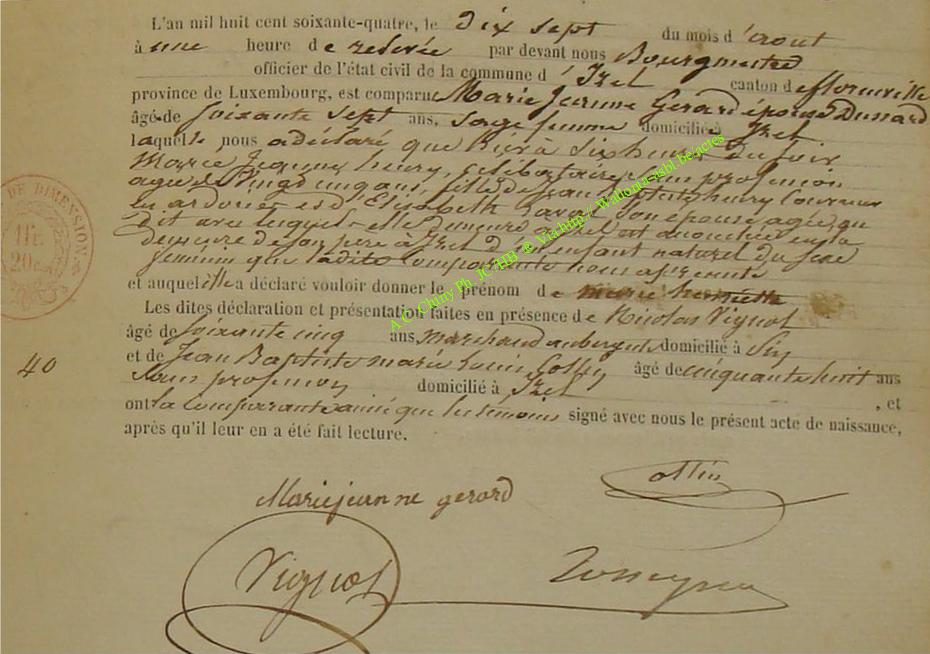 L'an mil huit cent soixante-quatre, le Dix sept du mois d'aout
à une heure de relevée par devant nous Bourgmestre
officier de l'état civil de la commune d'Izel canton de florenville
province de Luxembourg, est comparue Marie Jeanne Gerard épouse Dussard
âgée de soixante sept ans, sage femme domiciliée à Izel
laquelle nous a déclaré que hier à Six heures Du soir
Marie Jeanne henry, célibataire, profession
agée de Vingt cinq ans, fille de Jean Baptiste henry couvreur
en ardoises et d'Elisabeth son épouse
dit avec lesquels elle Demeure à Izel est accouchée en la
demeure de son père à Izel d'un enfant naturel du sexe
feminin que ladite Comparante nous a présenté
et auquel elle a déclaré vouloir donner le prénom de marie
Les dites déclaration et présentation faites en présence de Nicolas Vignol
âgé de soixante cinq ans, marchand aubergiste domicilié à
et de Jean Baptiste marie Louis Collin âgé de cinquante huit ans
Sans profession domicilié à Izel , et
ont la Comparante ainsi que les témoins signé avec nous le présent acte de naissance,
après qu'il leur en a été fait lecture.
DE DIMENSION
1fr.
20c.
40
A.G. Chiny Ph. JC-HB ® Via http://Wallonia-asbl.be.actes
Marie jeanne gerard
Collin
Vignol